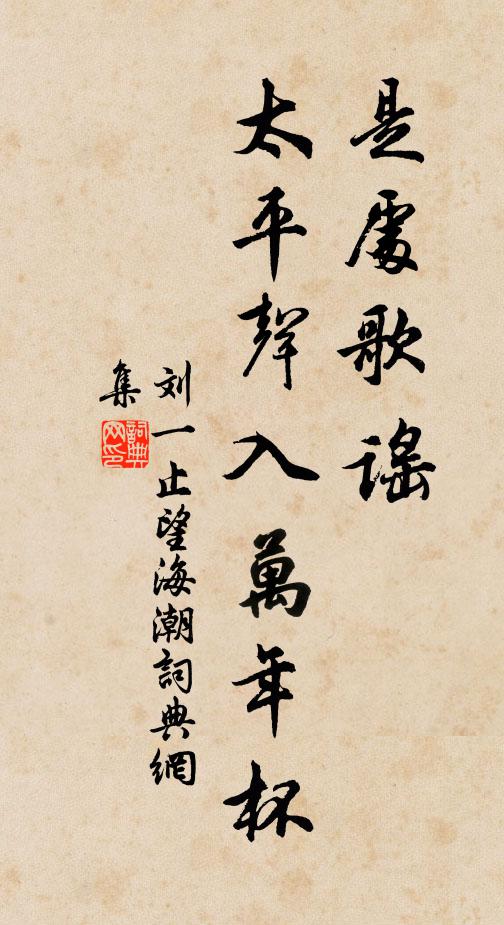 是處歌謠
太平聲入萬年杯
刘一止望海潮詞典網
集
詞典
网印